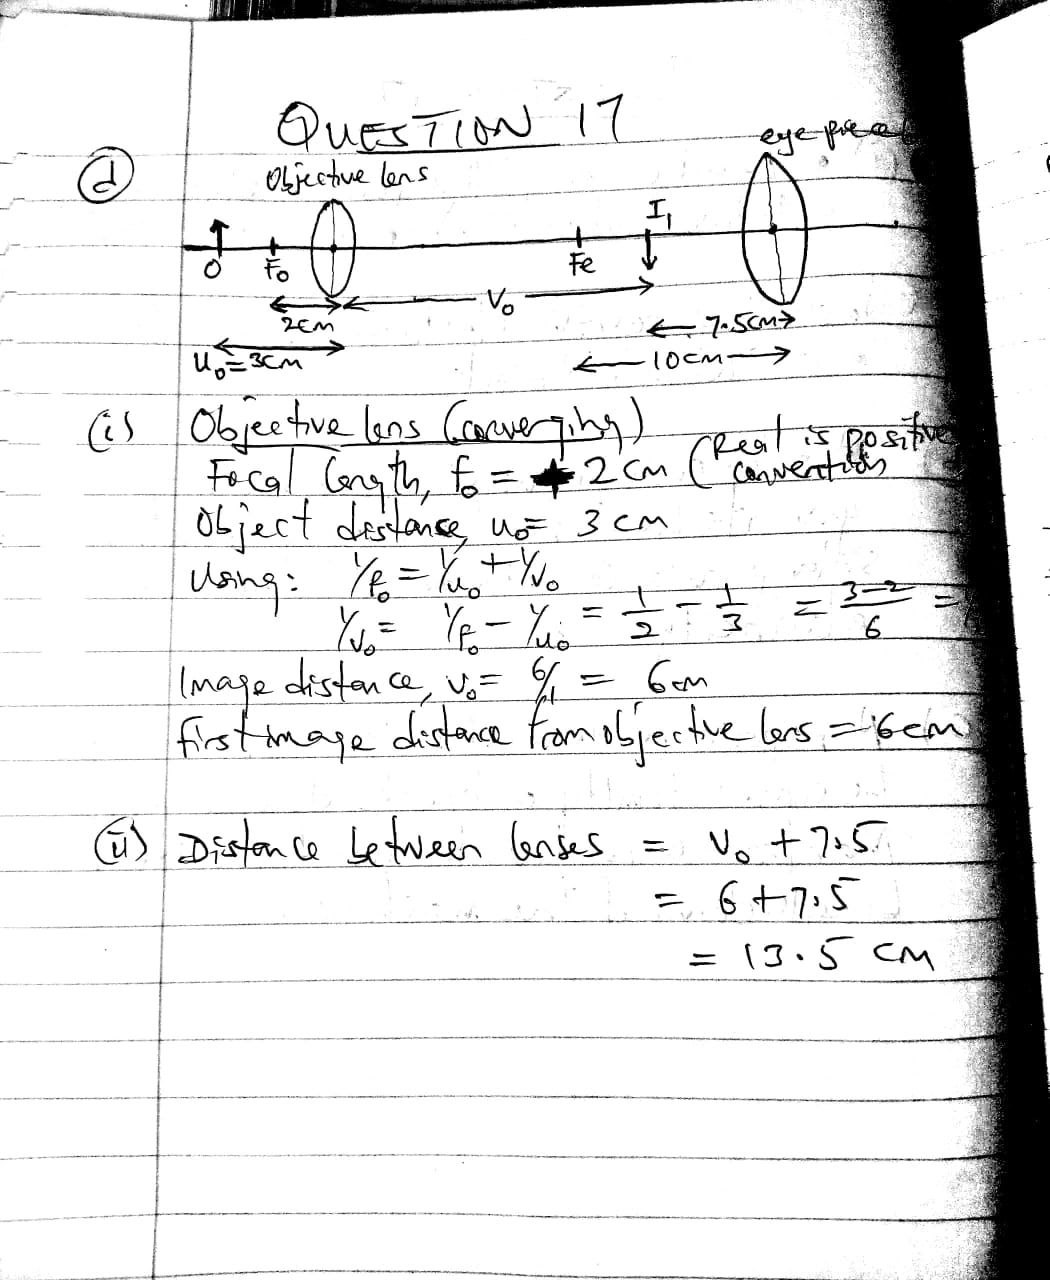 QUESTION 17
eye piece
(d)
Objective lens
I₁
O
Fo
Fe
Vo
2cm
7.5cm
uo = 3cm
10cm
(i) Objective lens (converging)
Focal length, fo = + 2 cm (Real is positive convention)
Object distance, uo = 3 cm
Using: 1/fo = 1/uo + 1/vo
1/vo = 1/fo - 1/uo = 1/2 - 1/3 = 3-2/6 =
Image distance, vo = 6/1 = 6cm
first image distance from objective lens = 6cm
(ii) Distance between lenses = Vo + 7.5
= 6 + 7.5
= 13.5 cm